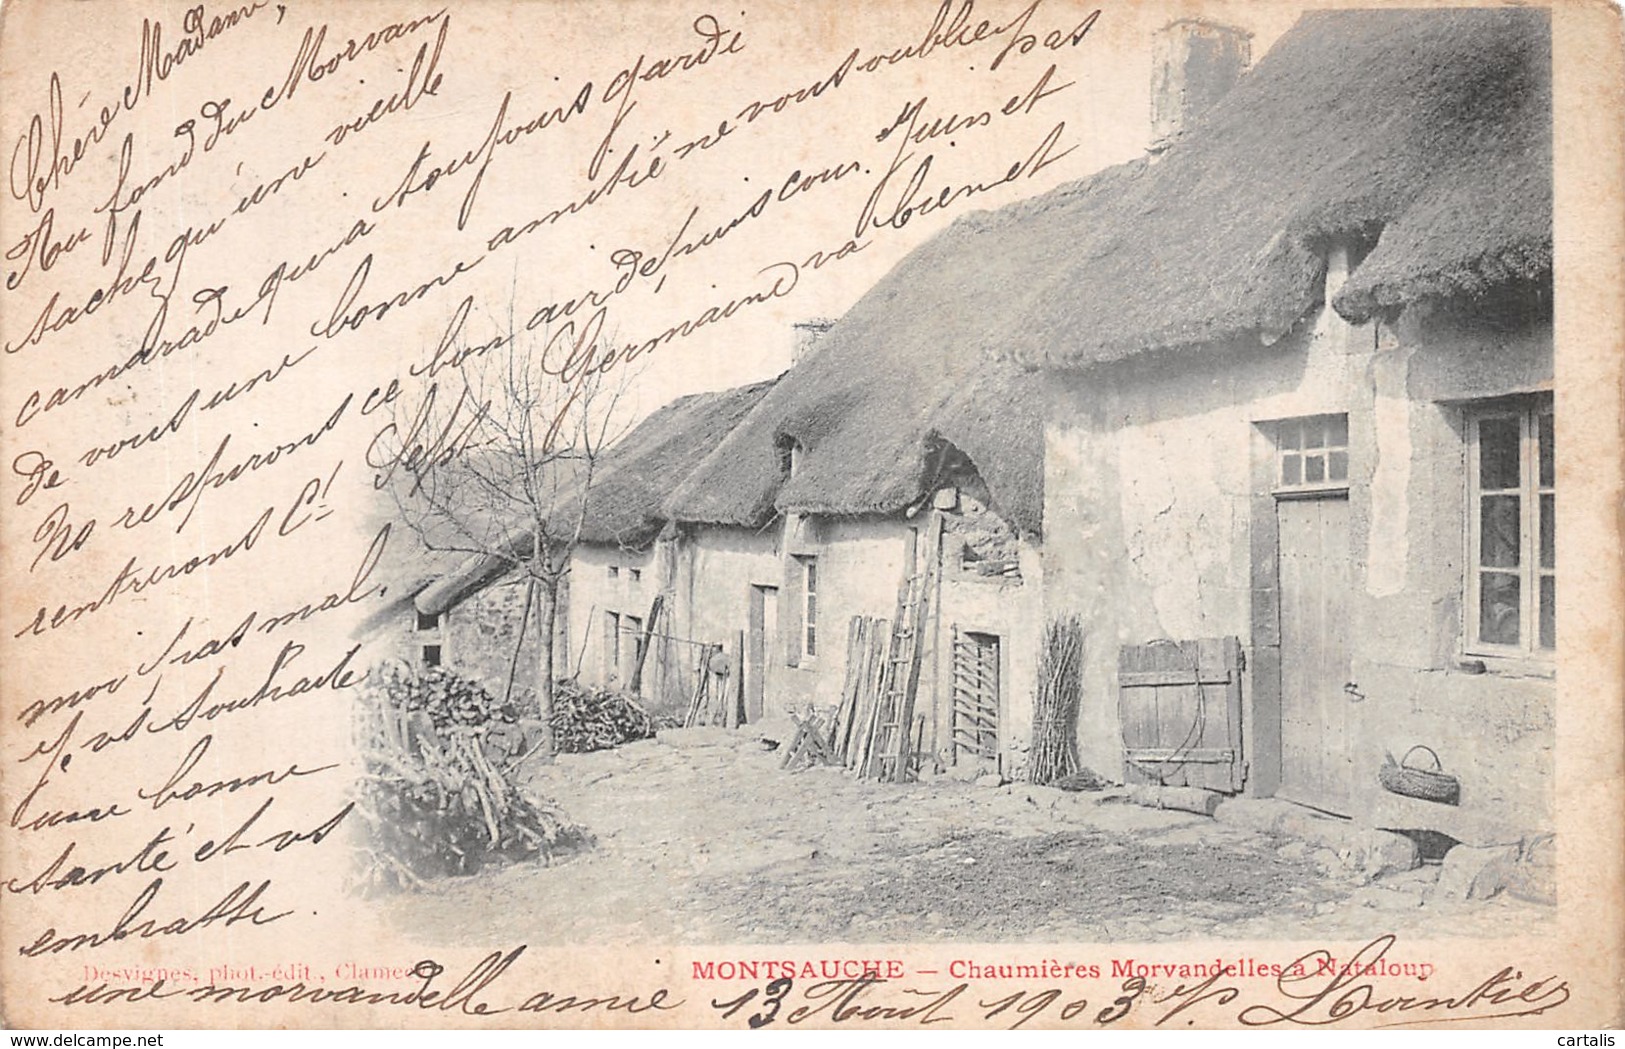 Chère Madame,
Au fond du Morvan
sachez qu'une vieille
camarade qui a toujours gardé
de vous une bonne amitié ne vous oublie pas
Ns respirons ce bon air depuis cour. Juin et
rentrerons Ct Sept Germaine va bien et
moi pas mal.
J. vs souhaite
une bonne
santé et vs
embrasse.
une morvandelle amie 13 Août 1903
Desvignes, phot.-édit., Clamecy
MONTSAUCHE — Chaumières Morvandelles à Nataloup
delcampe.net
cartalis